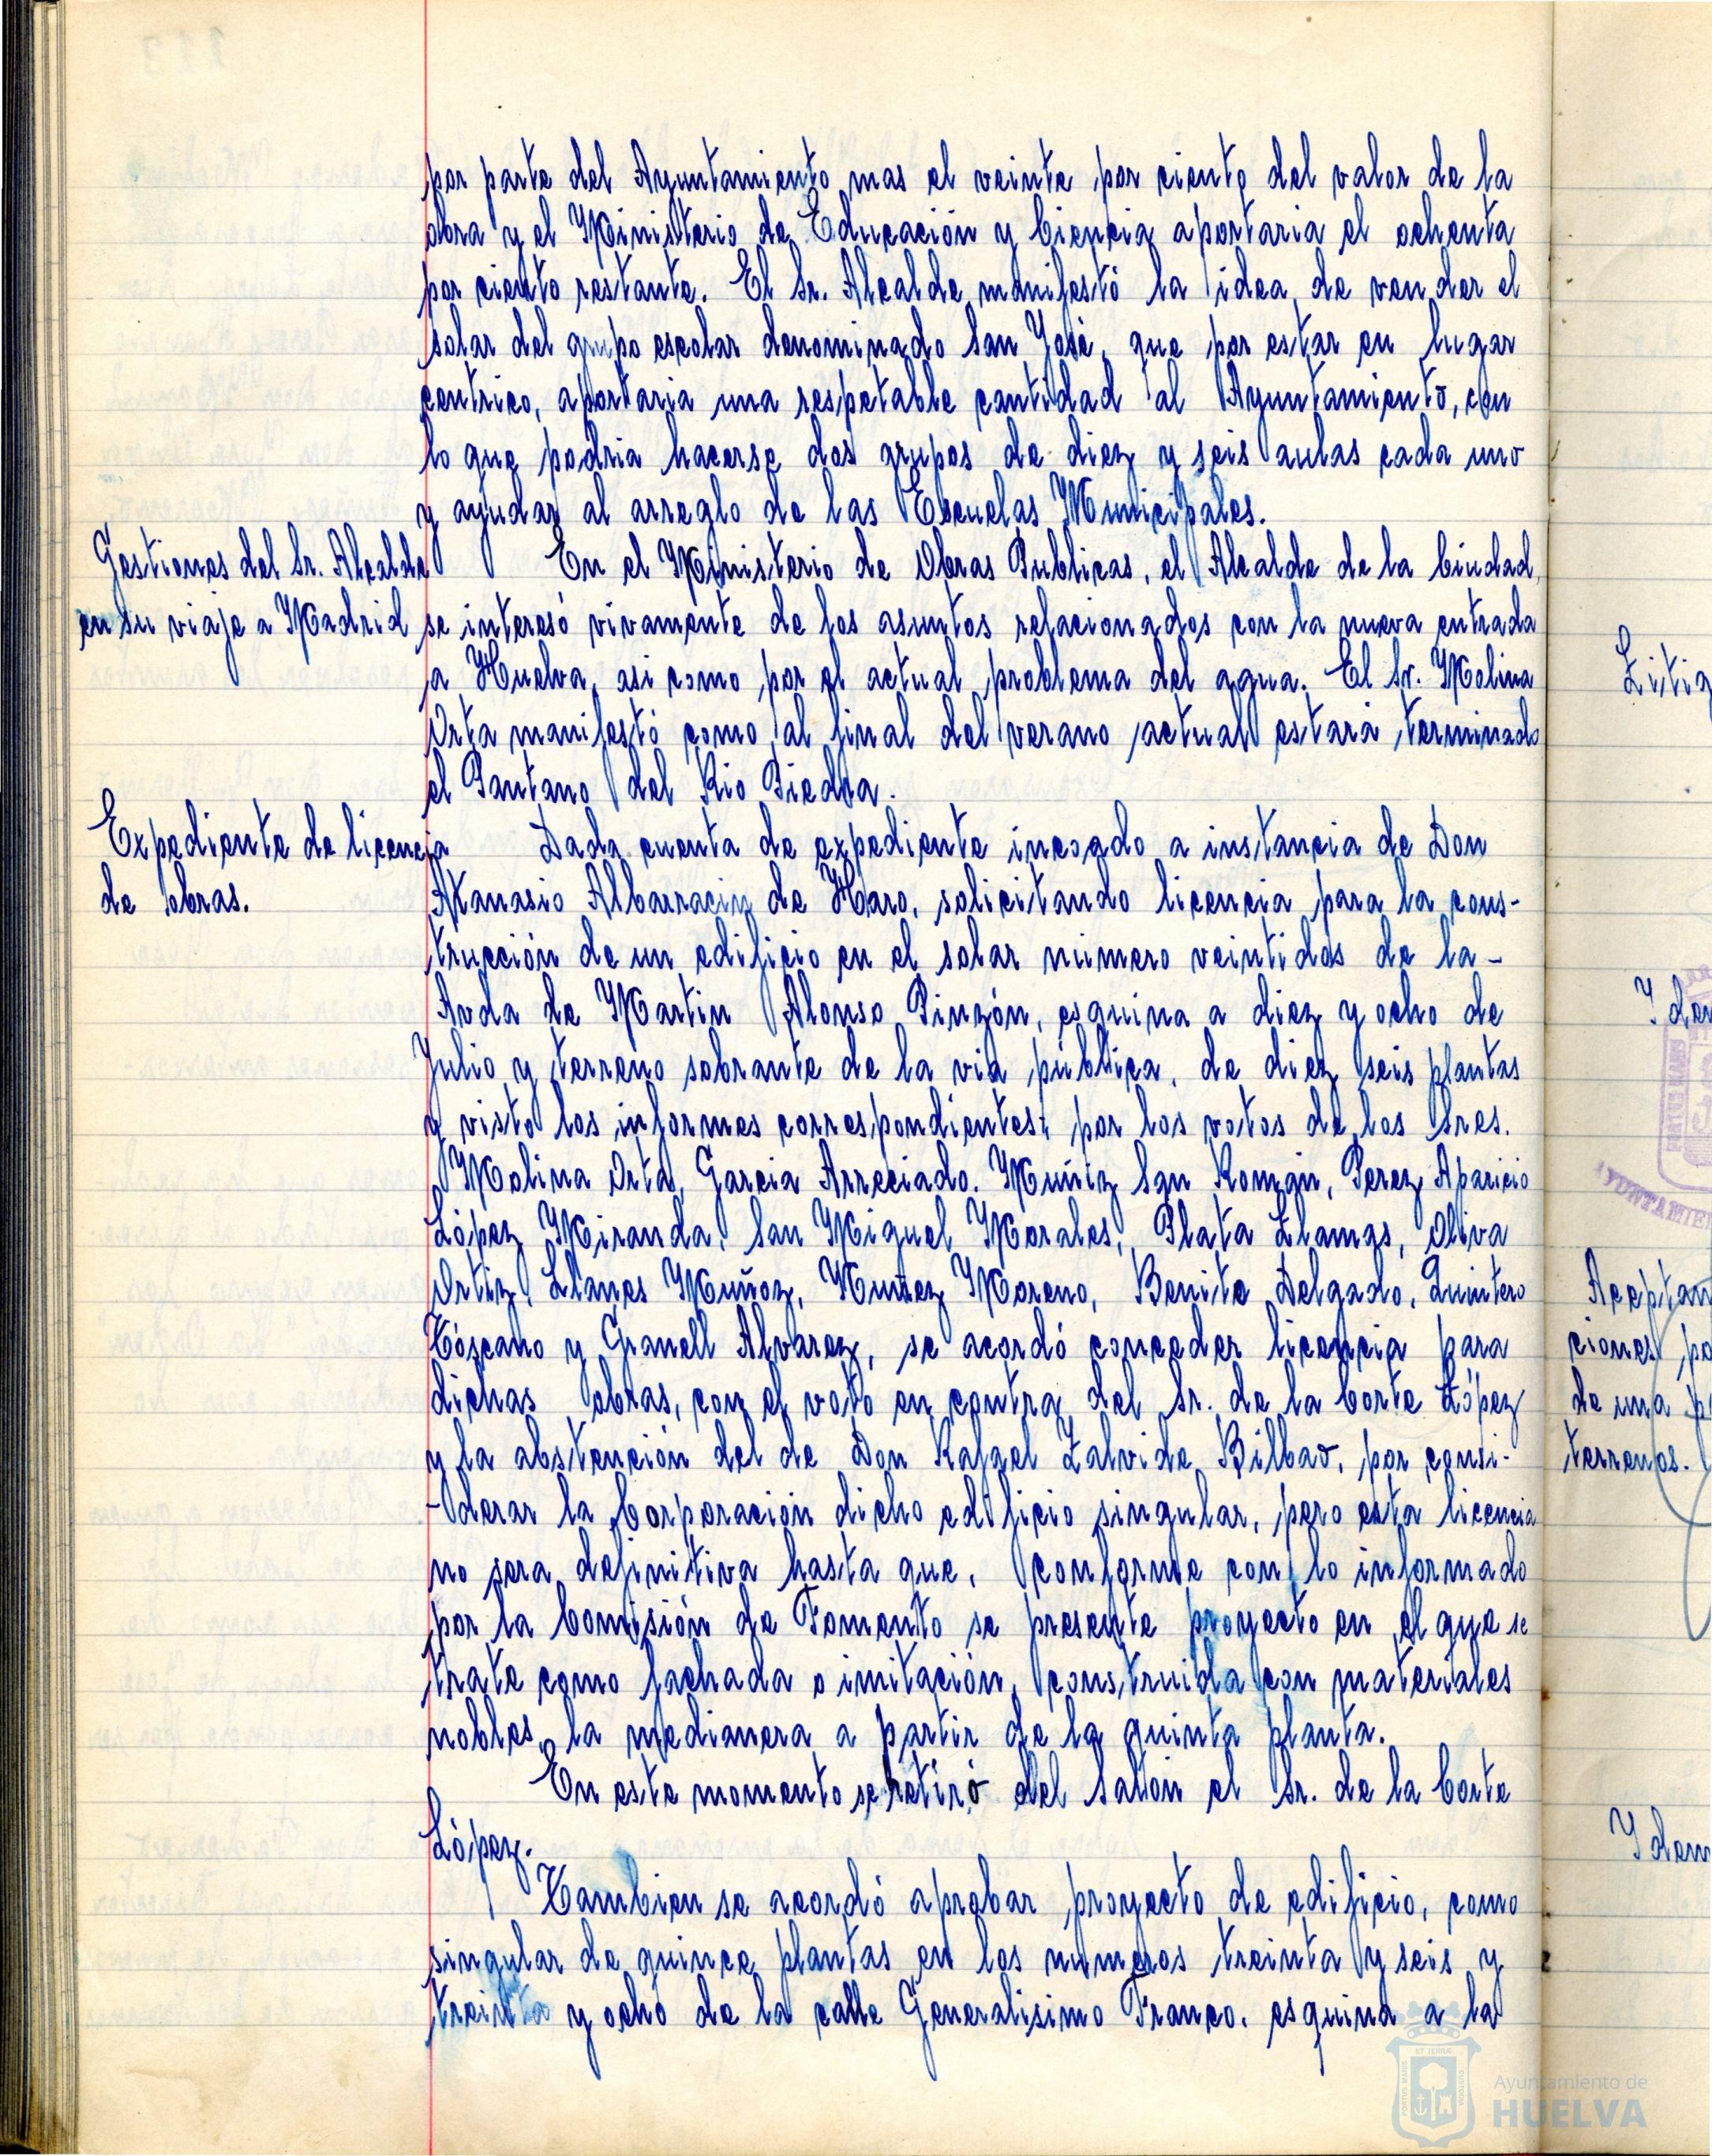 por parte del Ayuntamiento mas el veinte por ciento del valor de la
obra y el Ministerio de Educación y Ciencia aportaria el ochenta
por ciento restante. El Sr. Alcalde manifestó la idea de vender el
solar del grupo escolar denominado San José, que por estar en lugar
centrico, aportaria una respetable cantidad al Ayuntamiento, con
lo que podria hacerse dos grupos de diez y seis aulas cada uno
y ayudar al arreglo de las Escuelas Municipales.
Gestiones del Sr. Alcalde
en su viaje a Madrid
En el Ministerio de Obras Publicas, el Alcalde de la Ciudad,
se interesó vivamente de los asuntos relacionados con la nueva entrada
a Huelva, asi como por el actual problema del agua. El Sr. Molina
Orta manifestó como al final del verano actual estará terminado
el Pantano del Rio Piedra.
Expediente de licencia
de obras.
Dada cuenta de expediente incoado a instancia de Don
Atanasio Albarracin de Haro, solicitando licencia para la cons-
trucción de un edificio en el solar numero veintidos de la-
Avda de Martin Alonso Pinzón, esquina a diez y ocho de
Julio y terreno sobrante de la via pública, de diez seis plantas
y visto los informes correspondientes; por los votos de los Sres.
Molina Orta, Garcia Arreciado. Muñiz San Román, Perez Aparicio
López Miranda, San Miguel Morales, Plata Llamas, Oliva
Ortiz, Llanes Muñoz, Nuñez Moreno, Benite Delgado, Quintero
Tóscano y Granell Alvarez, se acordó conceder licencia para
dichas obras, con el voto en contra del Sr. de la Corte López
y la abstención del de Don Rafael Zalvide Bilbao, por consi-
-derar la Corporación dicho edificio singular, pero esta licencia
no sera definitiva hasta que, conforme con lo informado
por la Comisión de Fomento se presente proyecto en el que se
trate como fachada o imitación, construida con materiales
nobles, la medianera a partir de la quinta planta.
En este momento se retiró del Salón el Sr. de la Corte
López.
Tambien se acordó aprobar proyecto de edificio, como
singular de quince plantas en los numeros treinta y seis y
treinta y ocho de la calle Generalisimo Franco, esquina a la
Idem
ciones
de una
terrenos.
Idem
Ayuntamiento de
HUELVA